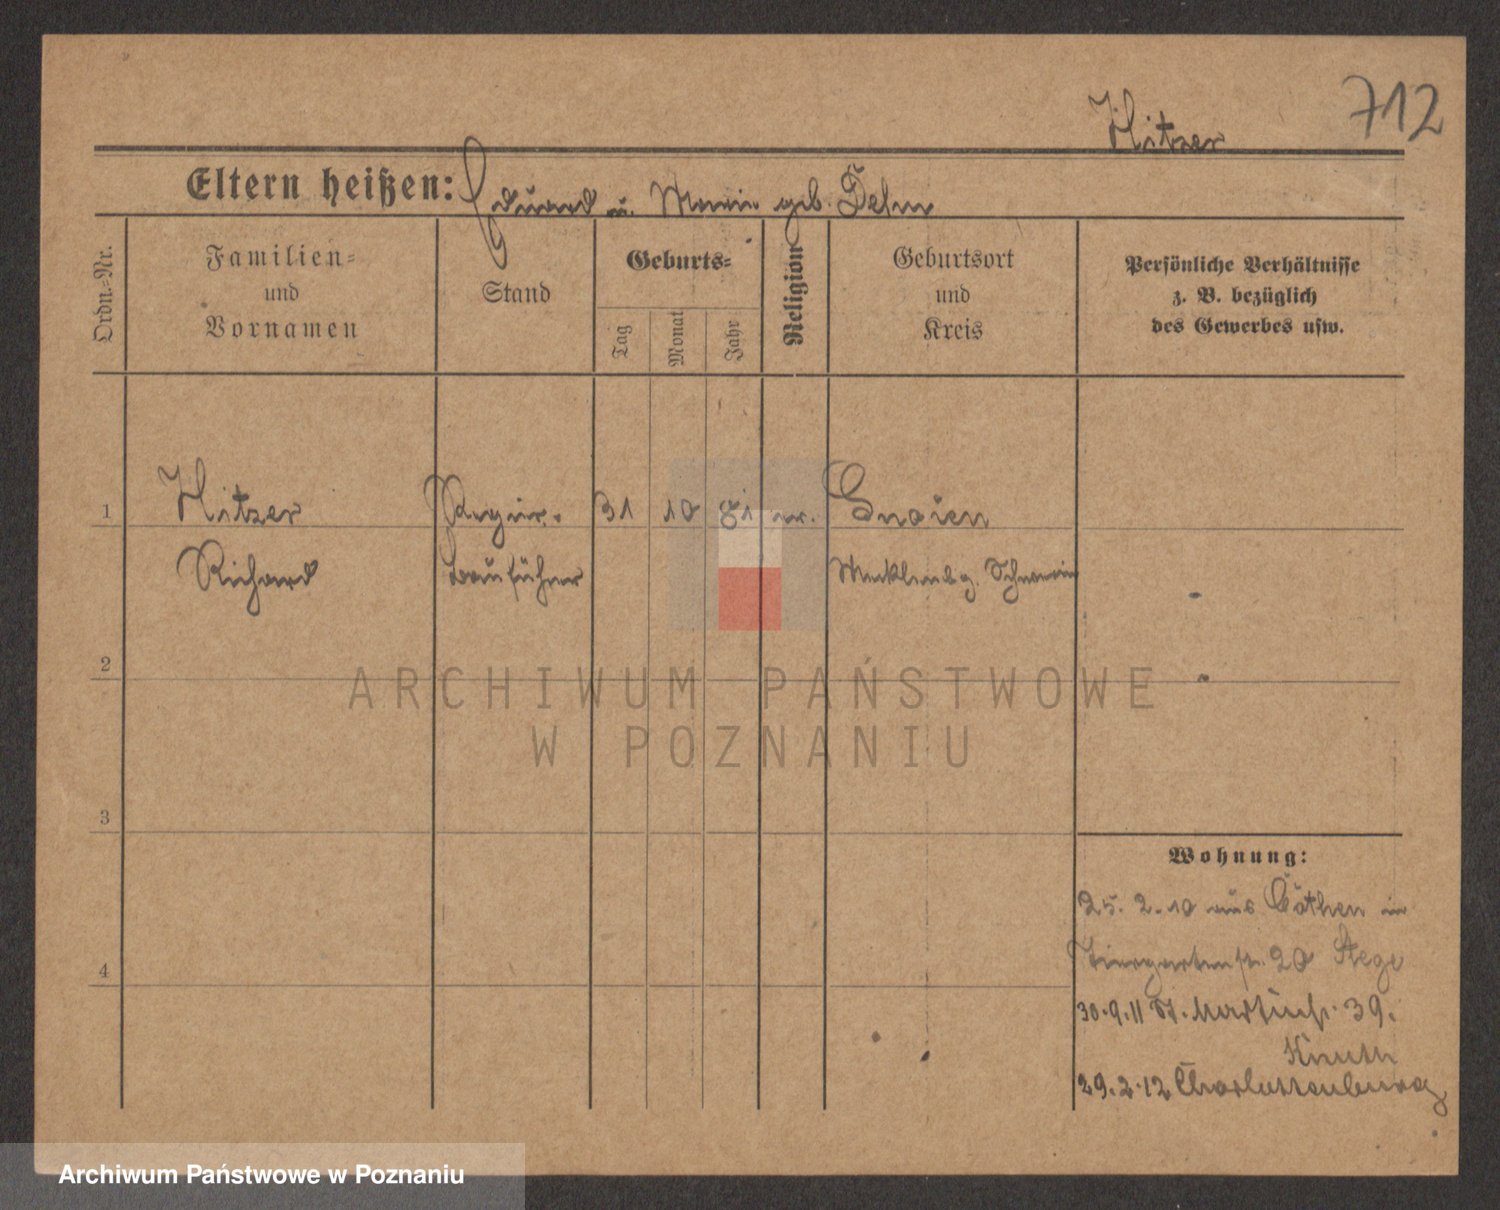 712
Hitzer
Eltern heißen: Eduard u. Marie geb. Dehn
Ordn.-Nr.
Familien-
und
Vornamen
Stand
Geburts-
Tag
Monat
Jahr
Religion
Geburtsort
und
Kreis
Persönliche Verhältnisse
z. B. bezüglich
des Gewerbes usw.
1 Hitzer Regier. 31 10 81 ev. Gnoien
Richard Bauführer Mecklenbg. Schwerin
2
ARCHIWUM PAŃSTWOWE
W POZNANIU
3
Wohnung:
25. 2. 10 aus Cöthen in
Tiergartenstr. 20 Stege
4
30.9.11 St. Martinstr. 39.
Knuth
29.2.12 Charlottenburg
Archiwum Państwowe w Poznaniu